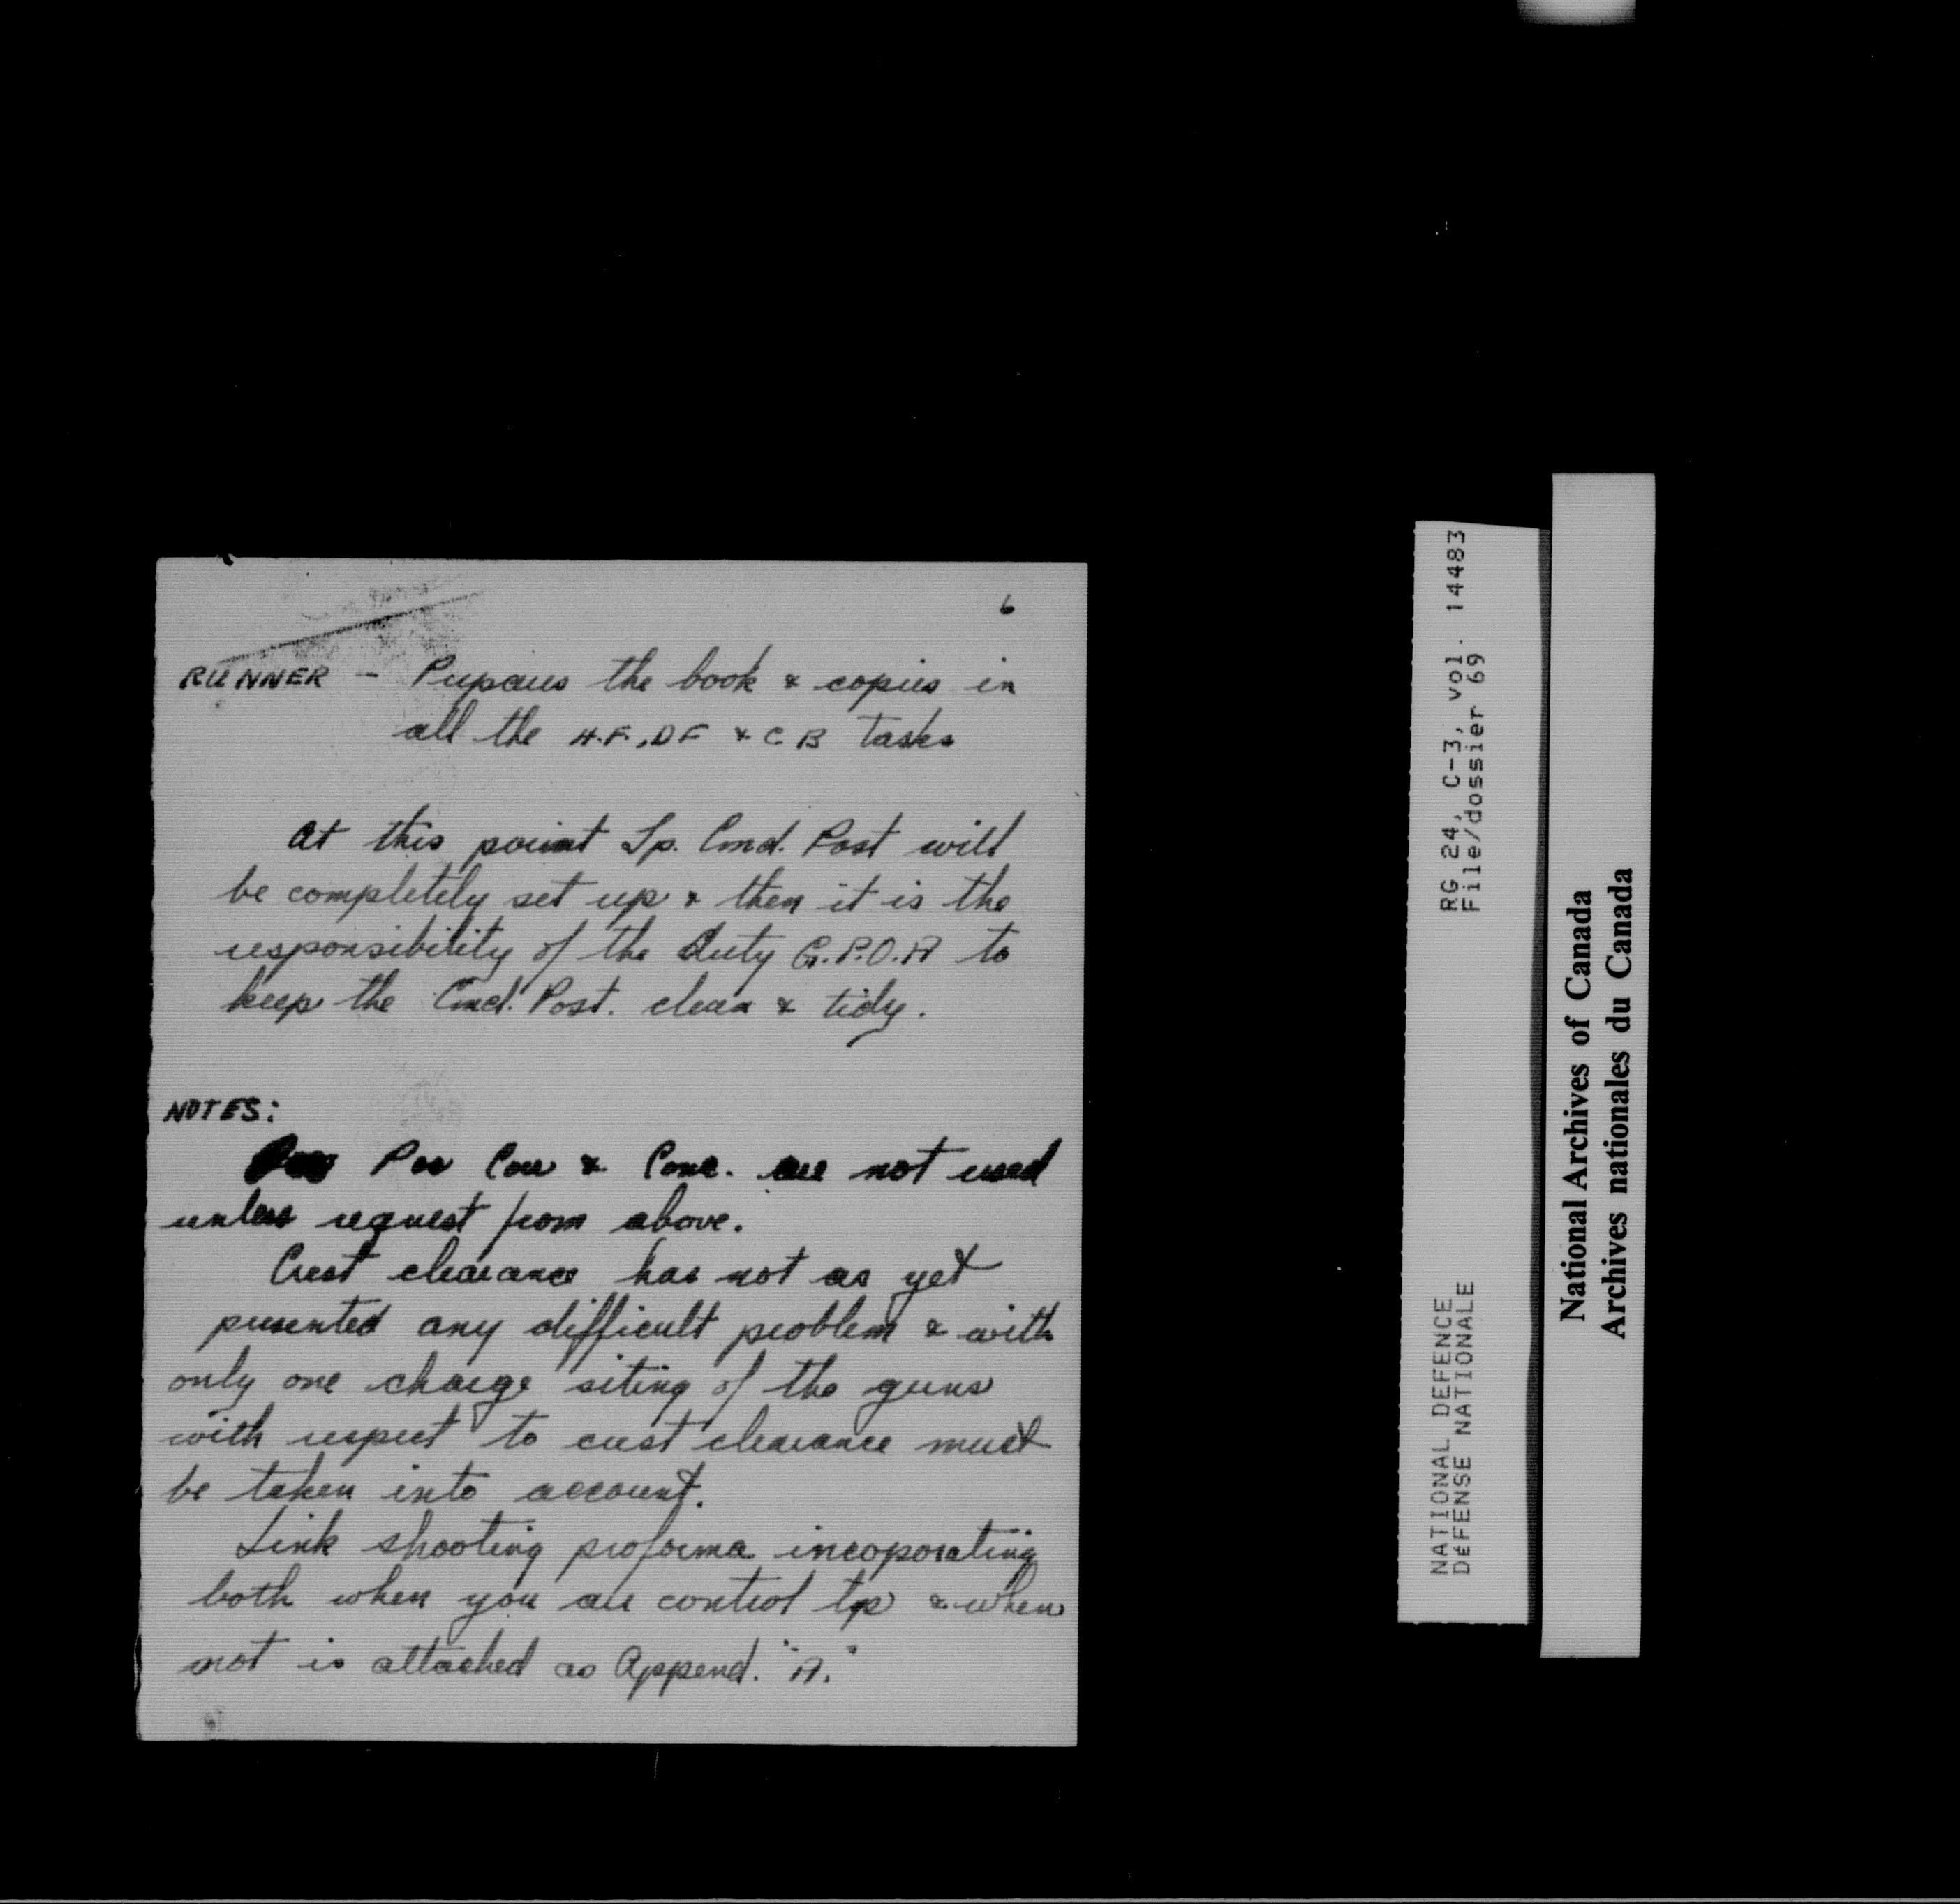 6
RUNNER - Prepares the book & copies in
all the H.F., DF & CB Tasks
At this point Tp. Cmd. Post will
be completely set up & then it is the
responsibility of the duty G.P.O.A to
keep the Cmd. Post. clean & tidy.
NOTES:
Pos Corr & Conc. are not used
unless request from above.
Crest clearance has not as yet
presented any difficult problem & with
only one charge siting of the guns
with respect to crest clearance must
be taken into account.
Link shooting proforma incoporating
both when you are control tp & when
not is attached as Append. "A."
RG 24, C-3, vol. 14483
File/dossier 69
NATIONAL DEFENCE
DÉFENSE NATIONALE
National Archives of Canada
Archives nationales du Canada